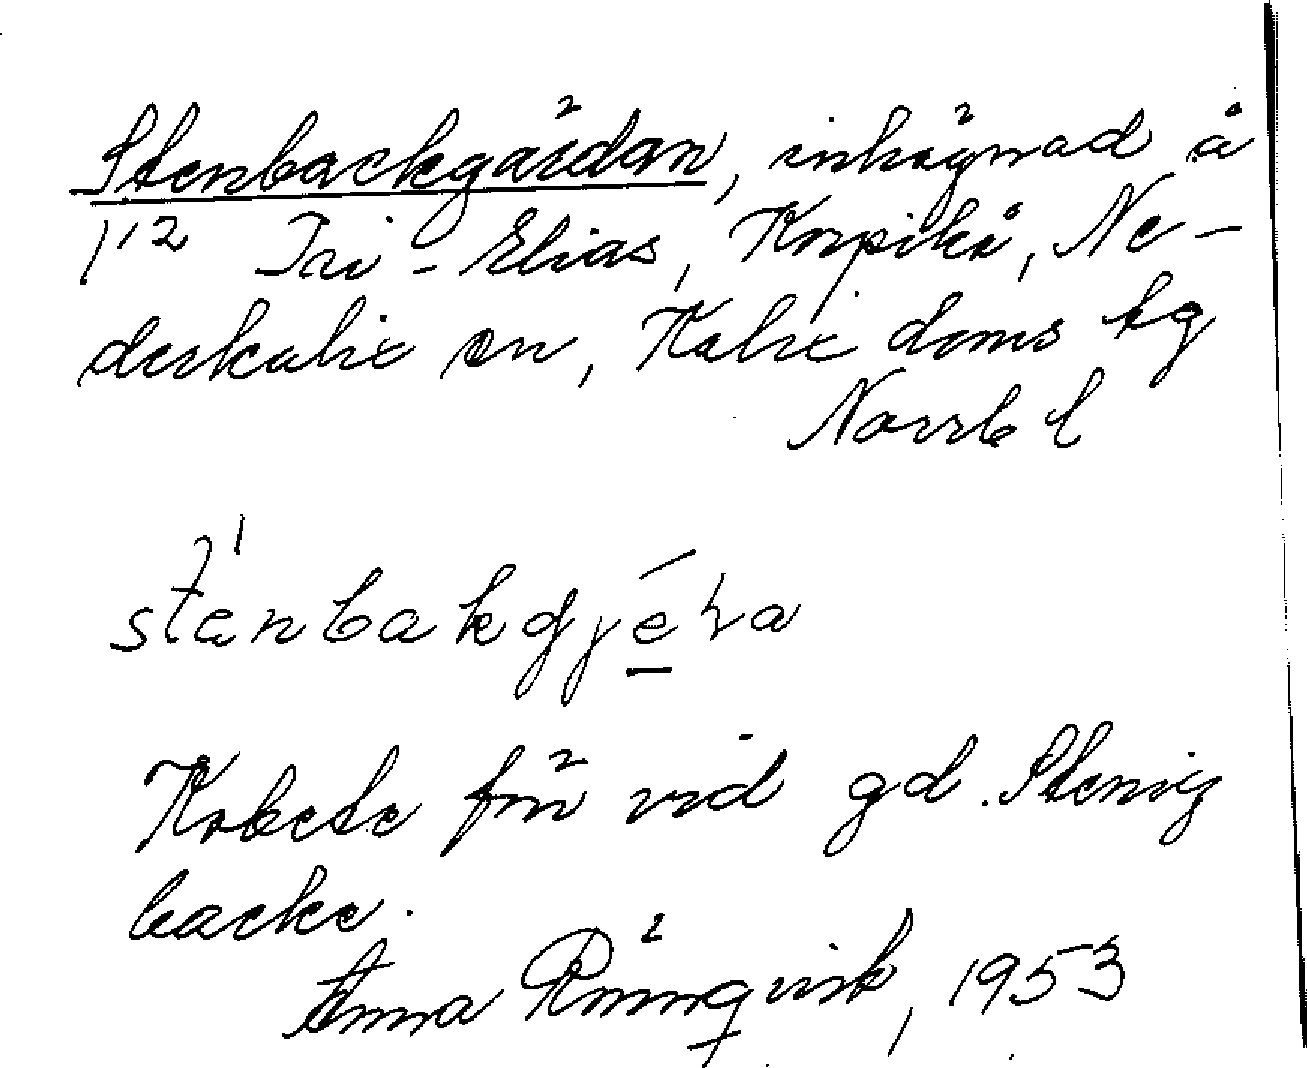 Stenbackgärdan, inhägnad å
1:2 Pri-Elias, Korpikå, Ne-
derkalix sn, Kalix doms tg
Norrb l
stenbakgjéra
Kobete förr vid gd. Stenig
backe.
Anna Rönnqvist, 1953